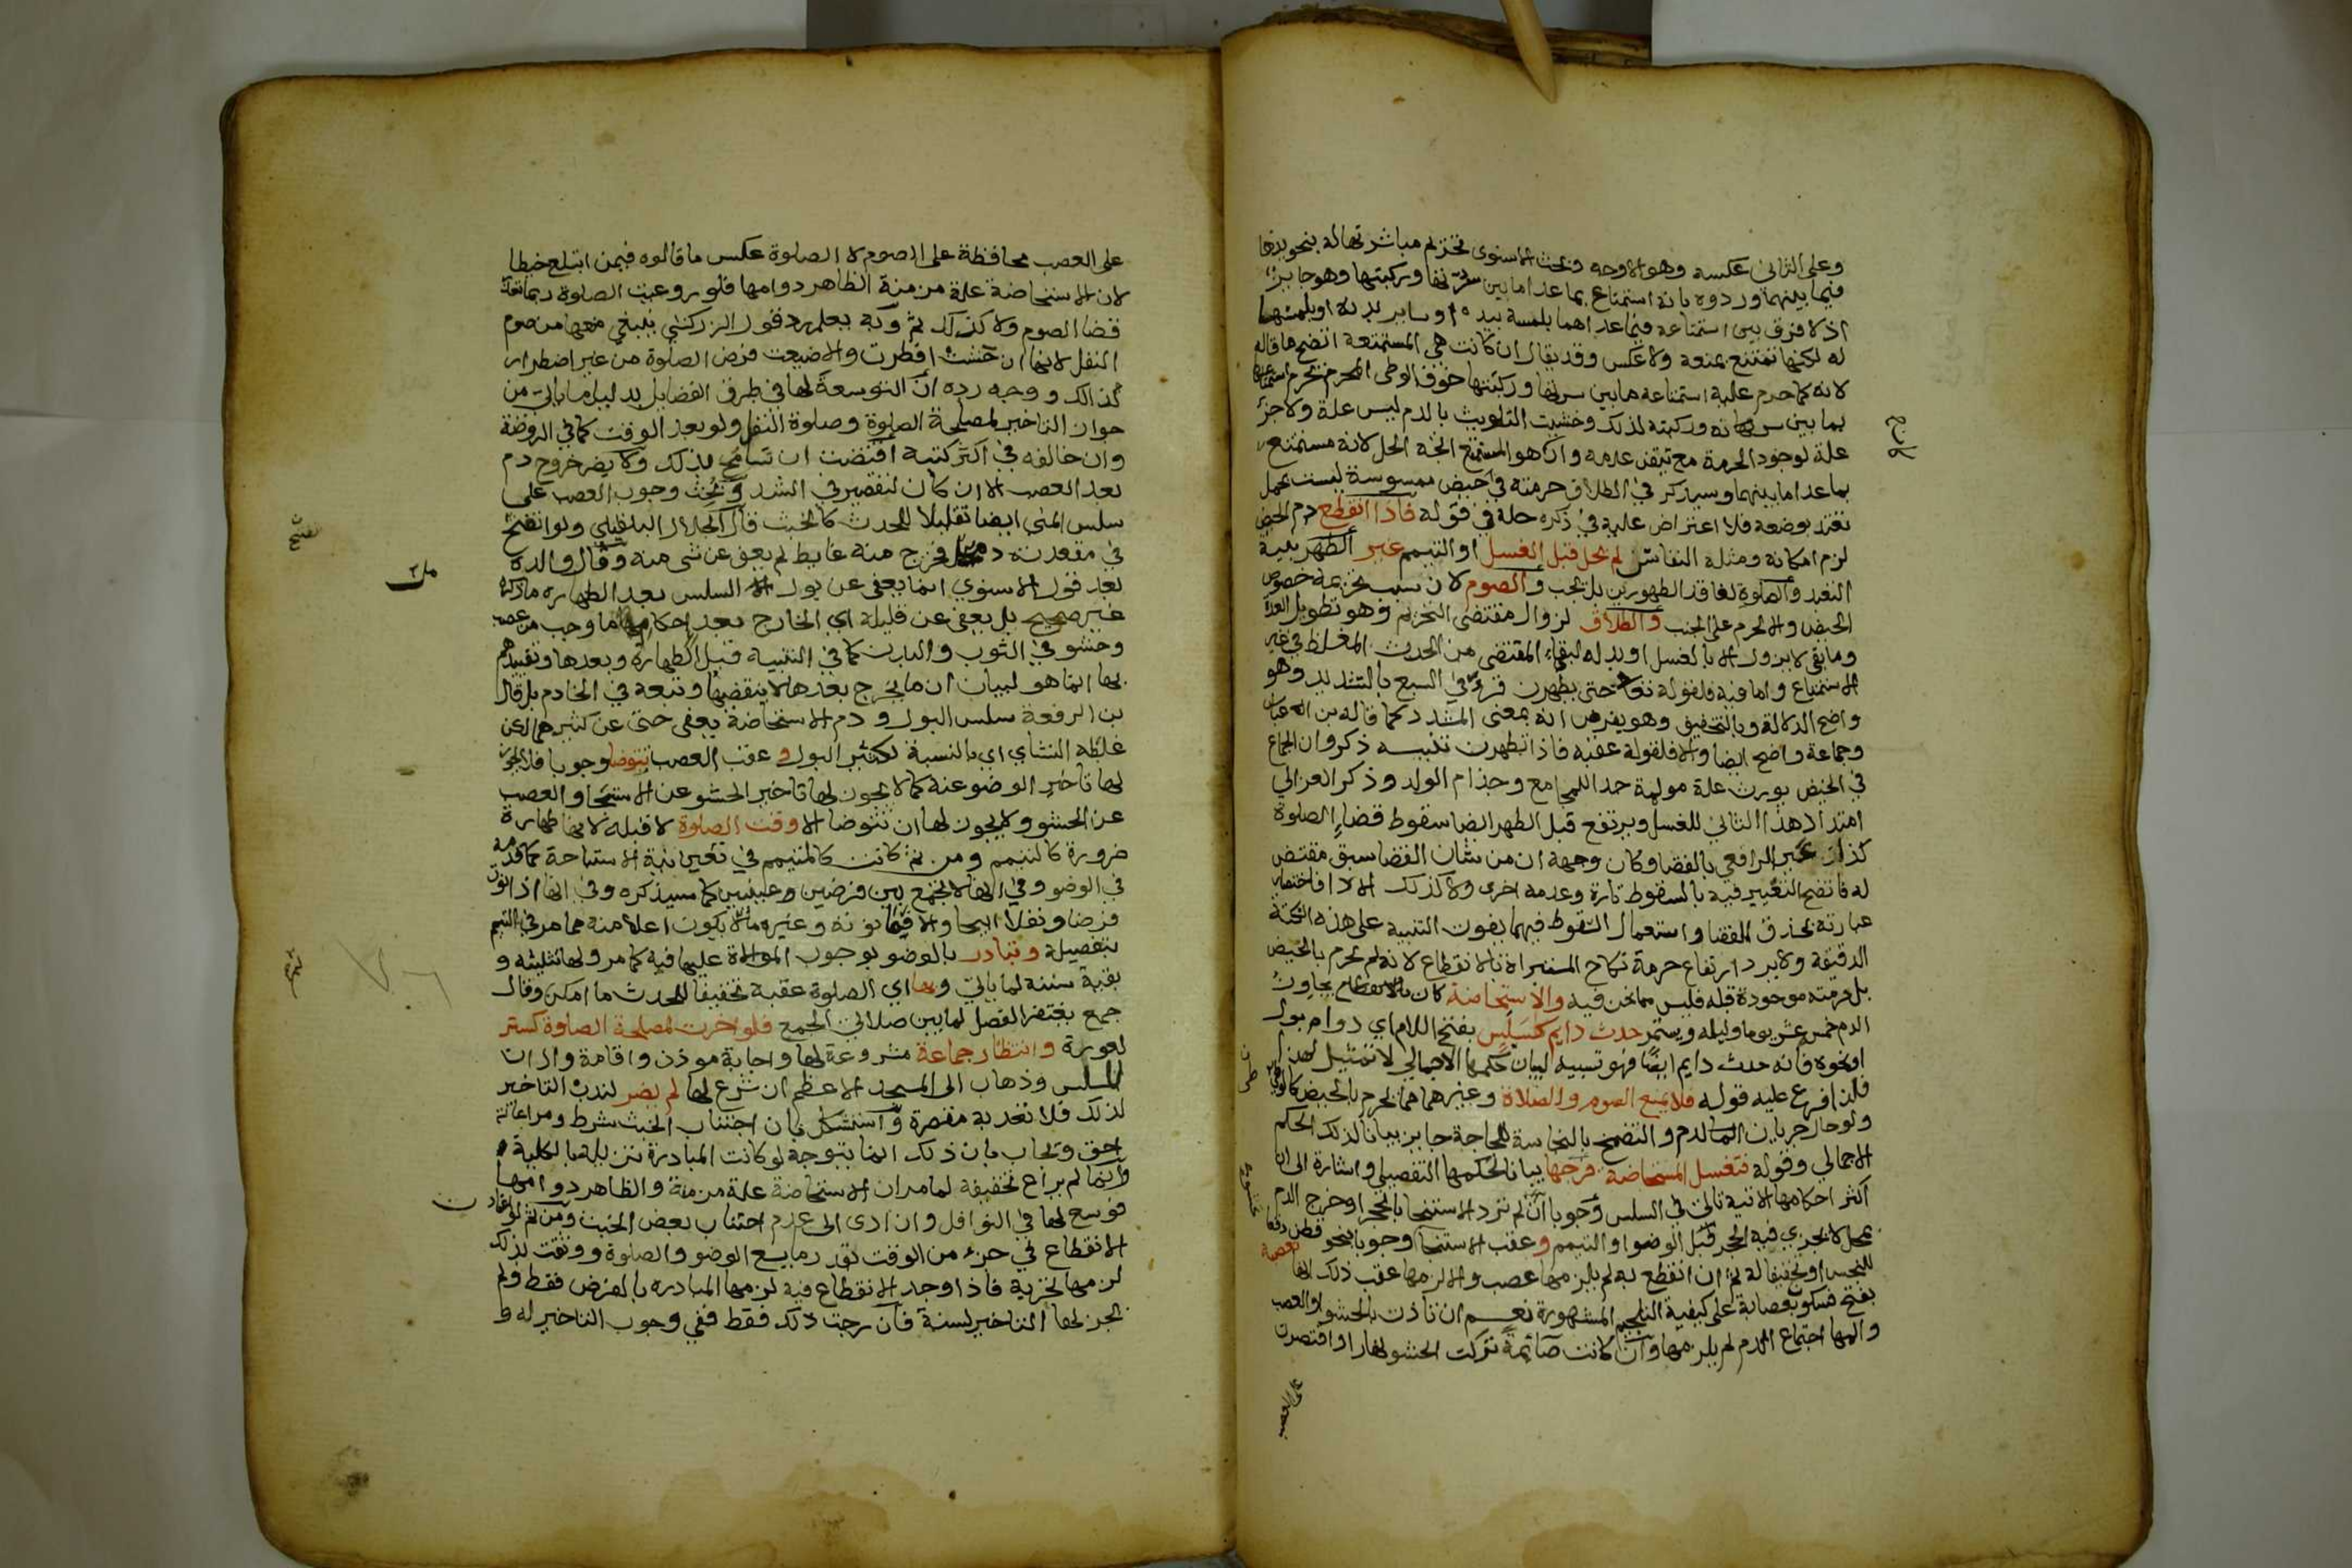 وعلى الثاني عكسه وهو الاوجه وبحث الاسنوي تحريم مباشرتها له بنحو يدها
فيما بينهما وردوه بانه استمتاع بما عدا ما بين سرتها وركبتها وهو جايز
اذ لا فرق بين استمتاعه فيما عداهما بلمسه بيده او ساير بدنه او بلمسها
له لكنها تمتنع بمنعه ولا عكس وقد يقال ان كانت هي المستمتعة اتضح ما قاله
لانه كما حرم عليه استمتاعه بما بين سرتها وركبتها خوف الوطي المحرم يحرم استمتاعها
بما بين سرته وركبته لذلك وخشيت التلويث بالدم ليس علة ولا جزء
علة لوجود الحرمة مع تيقن عدمه وان كان هو المستمتع اتجه الحل لانه مستمتع
بما عدا ما بينهما وسيذكر في الطلاق حرمته في حيض ممسوسة ليست بحمل
تعتد بوضعه فلا اعتراض عليه في ذكره حله في قوله فاذا انقطع دم الحيض
لزمن امكانه ومثله النفاس لم يحل قبل الغسل او التيمم غير الطهر بنية
التعبد والصلوة لفاقد الطهورين بل تجب والصوم لان سبب تحريمه خصوص
الحيض والا لحرم على الجنب والطلاق لزوال مقتضى التحريم وهو تطويل العدة
وما بقي لا يزول الا بالغسل او بدله لبقاء المقتضى من الحدث المغلظ في غير
الاستمتاع واما فيه فلقوله تعالى حتى يطهرن قرئ في السبع بالتشديد وهو
واضح الدلالة وبالتخفيف وهو بفرض انه بمعنى المشدد كما قاله بن عباس
وجماعة واضح ايضا والا فلقوله عقبه فاذا تطهرن تنبيه ذكروا ان الجماع
في الحيض يورث علة مولمة جدا للمجامع وجذام الولد وذكر الغزالي
امتداد هذا الثاني للغسل ويرتفع قبل الطهر ايضا سقوط قضاء الصلوة
كذا عبر الرافعي بالقضا وكان وجهه ان من شان القضا سبق مقتض
له فاتضح التعبير فيه بالسقوط تارة وعدمه اخرى ولا كذلك الادا فاختصار
عبارته بحذف القضا واستعمال السقوط فيهما يفوت التنبيه على هذه النكتة
الدقيقة ولا يرد ارتفاع حرمة نكاح المستبراة بالانقطاع لانه لم يحرم بالحيض
بل حرمته موجودة قبله فليس مما نحن فيه والاستحاضة كان يجاوز
الدم خمس عشر يوما وليله ويستمر حدث دايم كسلس بفتح اللام اي دوام بول
او نحوه فانه حدث دايم ايضا فهو تشبيه لبيان حكمها الاجمالي لا تمثيل لها
فلذا فرع عليه قوله فلا يمنع الصوم والصلاة وغيرهما مما يحرم بالحيض كالوطي
ولو حال جريان الدم والتضمخ بالنجاسة للحاجة جايز بيانا لذلك الحكم
الاجمالي وقوله فتغسل المستحاضة فرجها بيانا لحكمها التفصيلي واشارة الى ان
اكثر احكامها الاتية تاتي في السلس وجوبا ان لم ترد الاستنجا بالحجر او خرج الدم
بمحل لا يجزي فيه الحجر قبل الوضو او التيمم وعقب الاستنجا وجوبا بنحو قطن دفعا
للنجس او تخفيفا له ثم ان انقطع به لم يلزمها عصب والا لزمها عقب ذلك انها
بفتح فسكون بعصابة على كيفية التلجم المشهورة نعم ان تاذت بالحشو او العصب
والمها اجتماع الدم لم يلزمها وان كانت صائمة تركت الحشو نهارا واقتصرت
على العصب
على العصب محافظة على الصوم لا الصلوة عكس ما قالوه فيمن ابتلع خيطا
لان الاستحاضة علة مزمنة الظاهر دوامها فلو روعيت الصلوة ربما تعذر
قضا الصوم ولا كذلك ثم وبه يعلم رد قول الزركشي ينبغي منعها من صوم
النفل لانها ان حشت افطرت والا ضيعت فرض الصلوة من غير اضطرار
لذلك ووجه رده ان التوسعة لها في طرق الفضايل بدليل ما ياتي من
جواز التاخير لمصلحة الصلوة وصلوة النفل ولو بعد الوقت كما في الروضة
وان خالفه في اكثر كتبه اقتضت ان تسامح بذلك ولا يضر خروج دم
بعد العصب الا ان كان لتقصير في الشد وبحث وجوب العصب على
سلس المني ايضا تقليلا للحدث كالخبث قال الجلال البلقيني ولو انفتح
في مقعدته دمل فخرج منه غايط لم يعف عن شي منه وقال والده
بعد قول الاسنوي انما يعفى عن بول السلس بعد الطهارة ما ذكره
غير صحيح بل يعفى عن قليله اي الخارج بعد احكام ما وجب من عصب
وحشو في الثوب والبدن كما في التنبيه قبل الطهارة وبعدها وتقييدهم
بها انما هو لبيان ان ما يخرج بعدها لا ينقضها وتبعه في الخادم بل قال
بن الرفعة سلس البول ودم الاستحاضة يعفى حتى عن كثيرهما لكن
غلطه النشاي اي بالنسبة لكثير البول و عقب العصب تتوضا وجوبا فلا يجوز
لها تاخير الوضو عنه كما لا يجوز لها تاخير الحشو عن الاستنجا والعصب
عن الحشو ولا يجوز لها ان تتوضا الا وقت الصلوة لا قبله لانها طهارة
ضرورة كالتيمم ومن ثم كانت كالمتيمم في تعين نية الاستباحة كما قدمه
في الوضو وفي انها لا تجمع بين فرضين عينيين كما سيذكره وفي انها اذا نوت
فرضا ونفلا ابيحا والا فيما نوته وغيره مالا يكون اعلا منه مما مر في التيمم
بتفصيله وتبادر بالوضو بوجوب الموالاة عليها فيه كما مر ولها تثليثه و
بقية سننه لما ياتي وبها اي الصلوة عقبه تخفيفا للحدث ما امكن وقال
جمع يغتفر الفصل لما بين صلاتي الجمع فلو اخرت لمصلحة الصلوة كستر
لعورة وانتظار جماعة مشروعة لها واجابة موذن واقامة واذان
السلس وذهاب الى المسجد الاعظم ان شرع لها لم يضر لندب التاخير
لذلك فلا تعد به مقصرة واستشكل بان اجتناب الخبث شرط ومراعاته
احق ويجاب بان ذلك انما يتوجه لو كانت المبادرة تزيله بالكلية
وانما لم يراع تخفيفه لما مر ان الاستحاضة علة مزمنة والظاهر دوامها
فوسع لها في النوافل وان ادى الى عدم اجتناب بعض الخبث ومن ثم لو اعتاد
الانقطاع في جزء من الوقت بقدر ما يسع الوضو والصلوة ووثقت بذلك
لزمها تحريه فاذا وجد الانقطاع فيه لزمها المبادرة بالفرض فقط ولم
يجز لها التاخير لسنة فان رجت ذلك فقط ففي وجوب التاخير له و